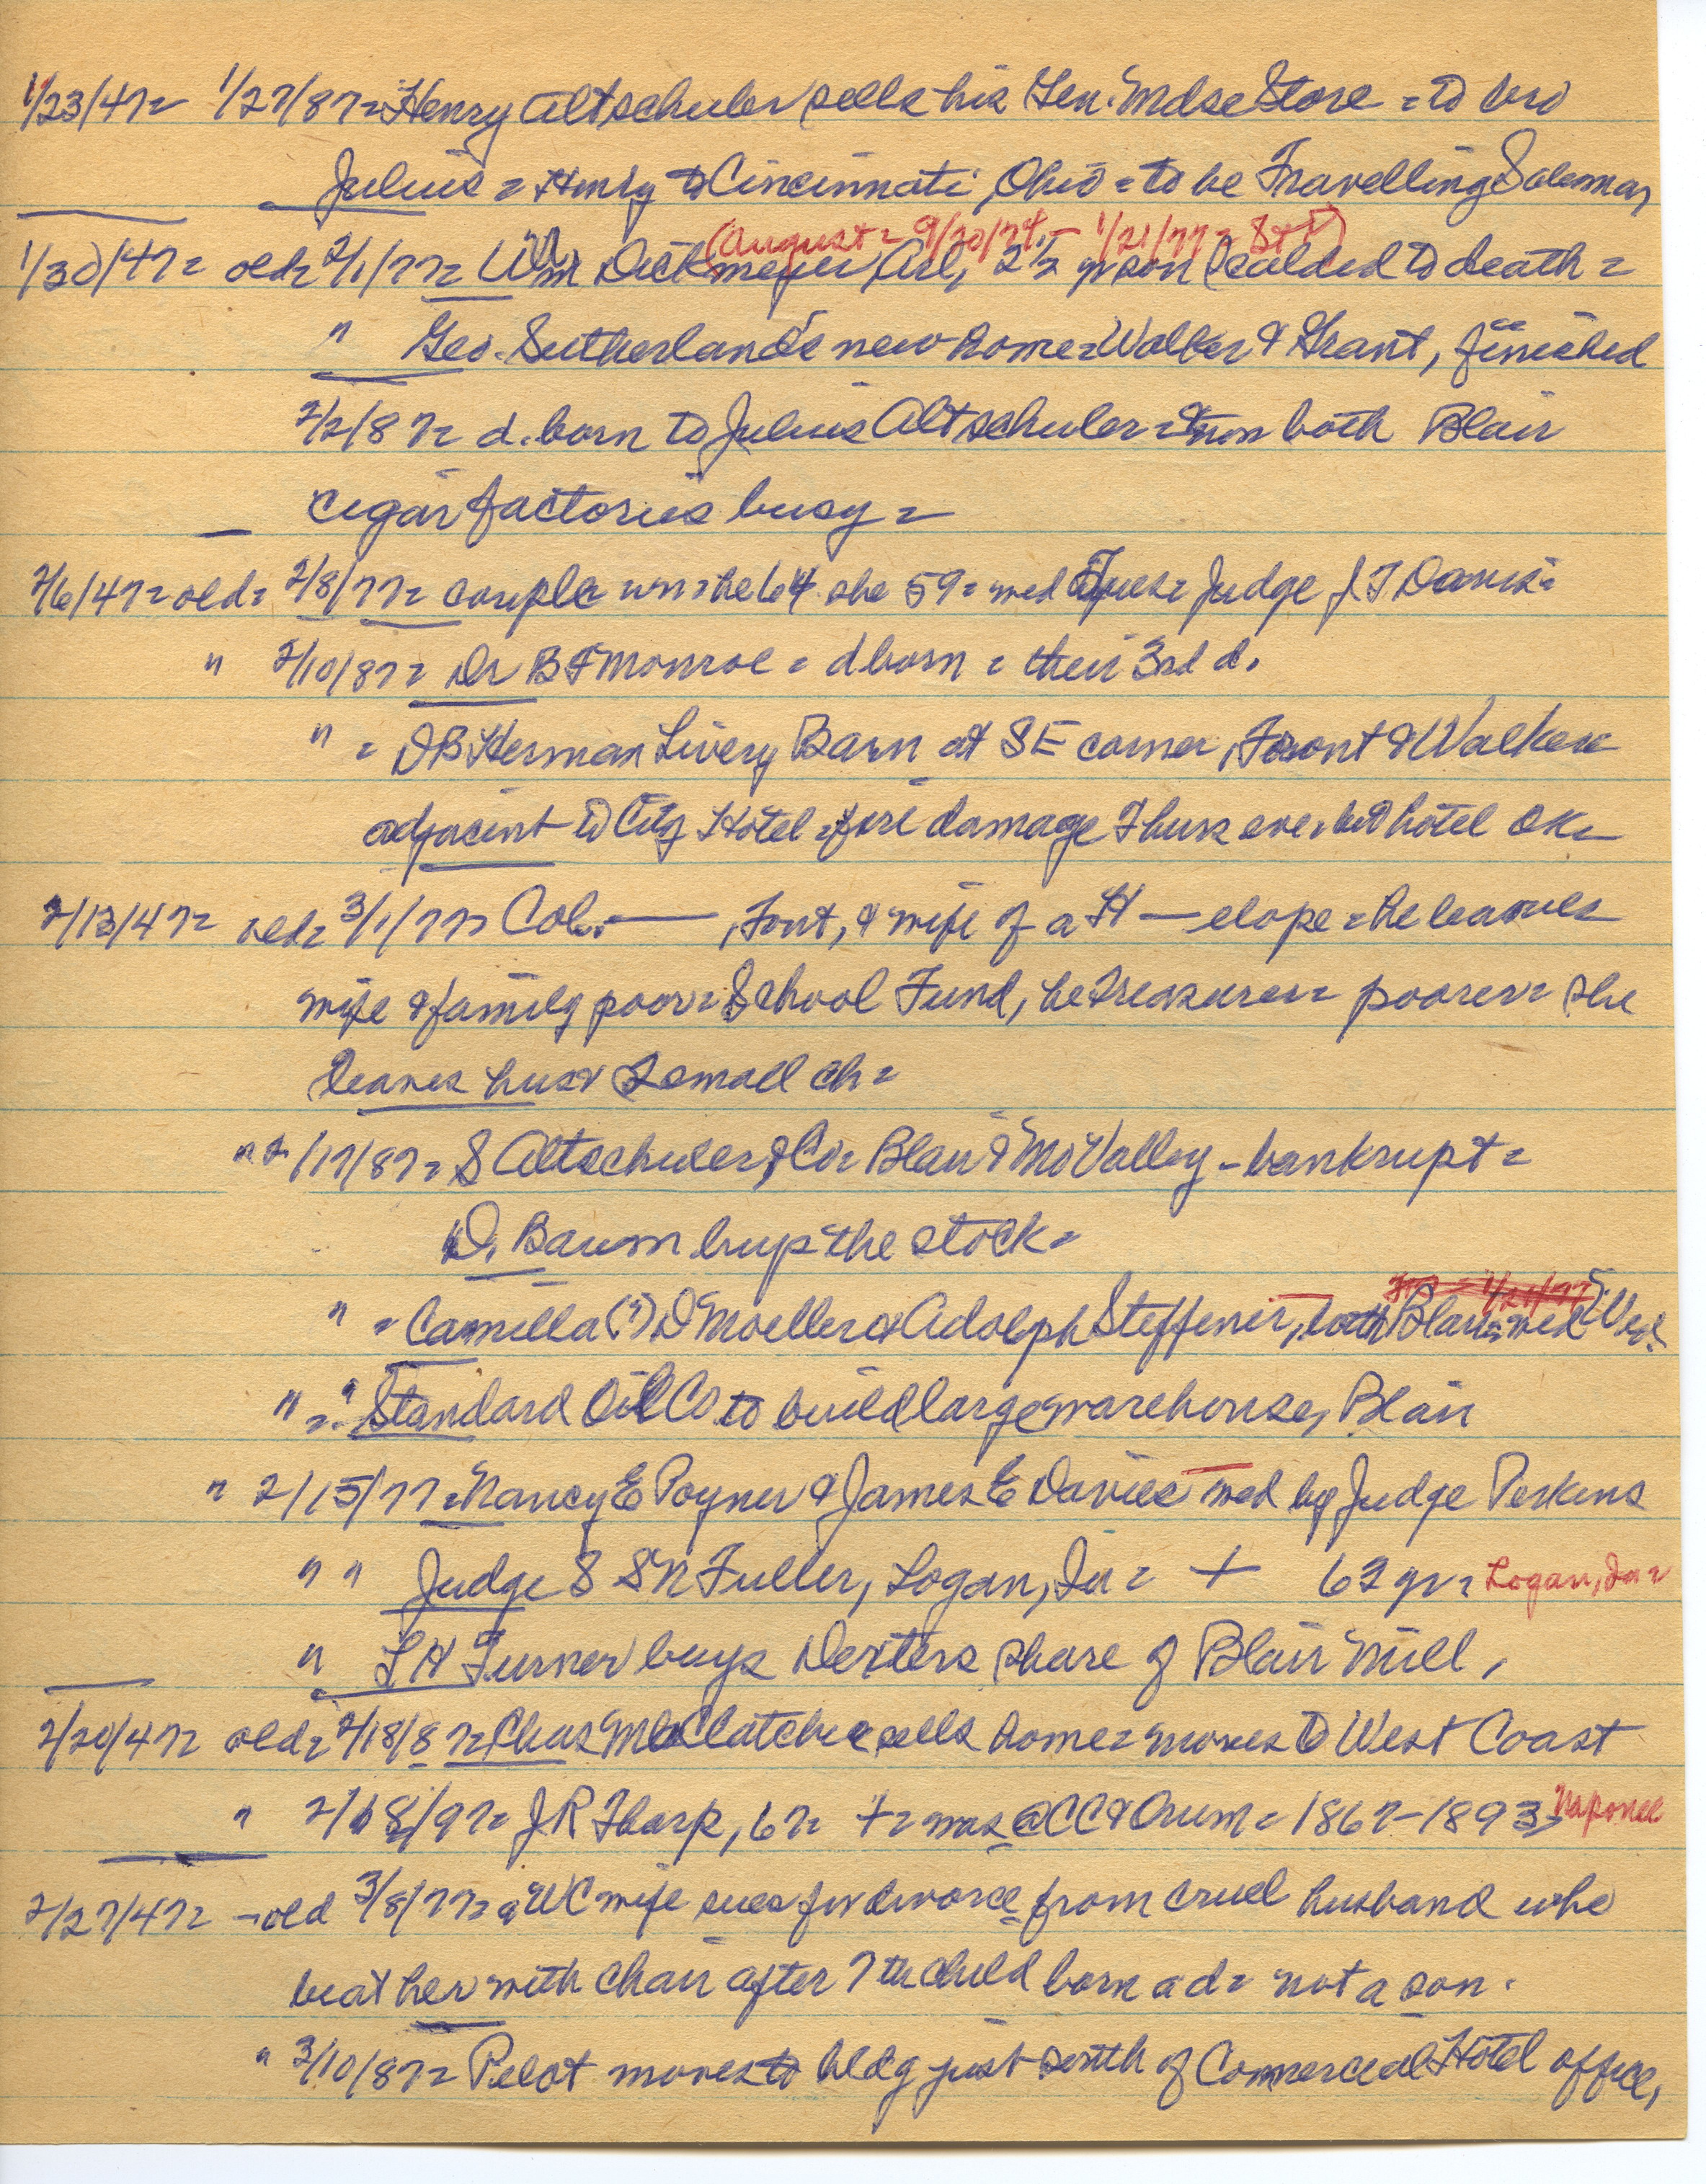 1/23/47= 1/27/87= Henry Altschuler sells his Gen. Mdse Store = to bro
Julius = Henry to Cincinnati, Ohio = to be Travelling Salesman
(August = 9/30/74 - 1/21/77 =
1/30/47= old= 2/1/77= Wm Dickmeyer, Arl, 2½ yr son scalded to death =
" Geo. Sutherland's new home = Walker & Grant, finished
2/2/87= d. born to Julius Altschuler = both Blair
cigar factories busy =
2/6/47= old= 2/8/77= couple he 64 she 59 = med Tues = Judge J T Davis =
" 2/10/87= Dr B F Monroe = d born = their 3rd d.
" = D B Herman Livery Barn at SE corner, Front & Walker
adjacent to City Hotel = fire damage Thurs eve. but hotel OK=
2/13/47= old= 3/1/77= Col. —— , Font, & wife of a H — elope = he leaves
wife & family poor = School Fund, he treasurer = poorer = she
leaves husb & 2 small ch =
" 2/17/87= S Altschuler & Co = Blair & Mo Valley - bankrupt =
D. Baum buys the stock =
" = Camilla (?) D Moeller & Adolph Steffener, both Blair = med Wed.
" = " Standard Oil Co to build large warehouse, Blair
" 2/15/77 = Nancy E Poyner & James E Davies med by Judge Perkins
" " Judge S N Fuller, Logan, Ia = + 63 yr = Logan, Ia =
" L H Turner buys Dexters share of Blair Mill,
2/20/47= old= 2/18/87= Chas McClatchie sells home = moves to West Coast
" 2/18/97= J R Tharp, 67= + = was @ CC & Orum = 1867-1893 = Naponee
2/27/47= - old 3/8/77= a WC wife sues for divorce from cruel husband who
beat her with chair after 7th child born a d = not a son.
" 3/10/87= Pilot moves to bldg just south of Commercial Hotel office,